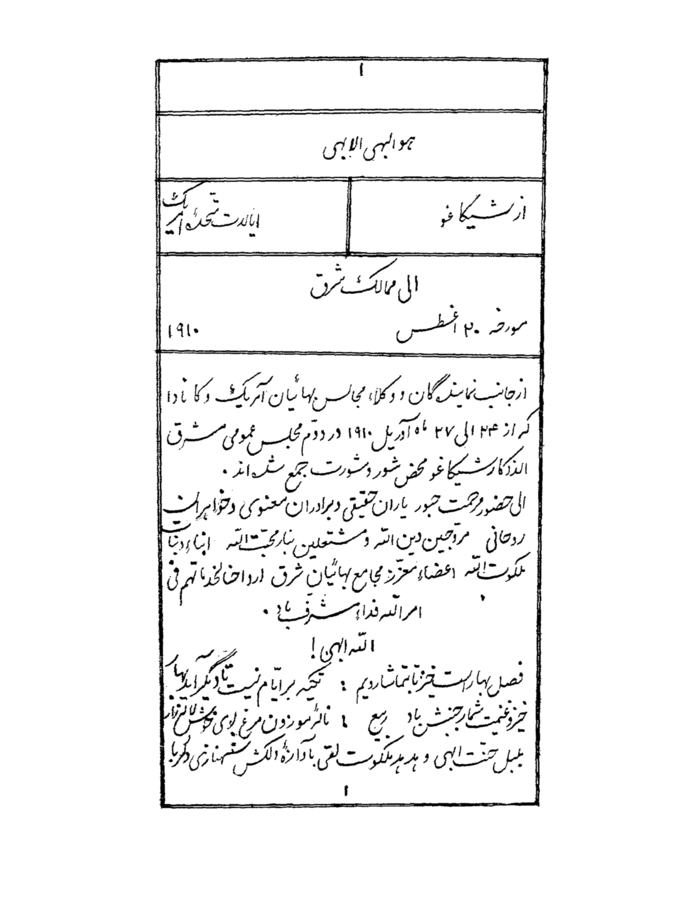 ١
هو البهی الابهی
از شیکاغو
ایالات متحدهٔ امریک
الی ممالک شرق
مورخه ٢٠ اغسطس ١٩١٠
از جانب نمایندگان و وکلاء مجالس بهائیان آمریک و کانادا
که از ٢٤ الی ٢٧ ماه آوریل ١٩١٠ در دوّم مجلس عمومی مشرق
الاذکار شیکاغو محض شور و مشورت جمع شده اند ٠
الی حضور یاران حقیقی و برادران معنوی و خواهران
روحانی مروّجین دین الله و مشتعلین بنار محبّت الله ابناء و بنات
ملکوت الله اعضاء معزّز مجامع بهائیان شرق ارواحنا لخدماتهم فی
امر الله فداء مشرّف باد ٠
الله ابهی !
فصل بهار است خیز تا بتماشا رویم : تکیه بر ایّام نیست تا دگر آید بهار
خیز و غنیمت شمار جنبش باد ربیع : نالهٔ موزون مرغ بوی خوش لاله زار
بلبل جنّت الهی و هدهد ملکوت لقی بآوازهٔ دلکش و دلربا
١